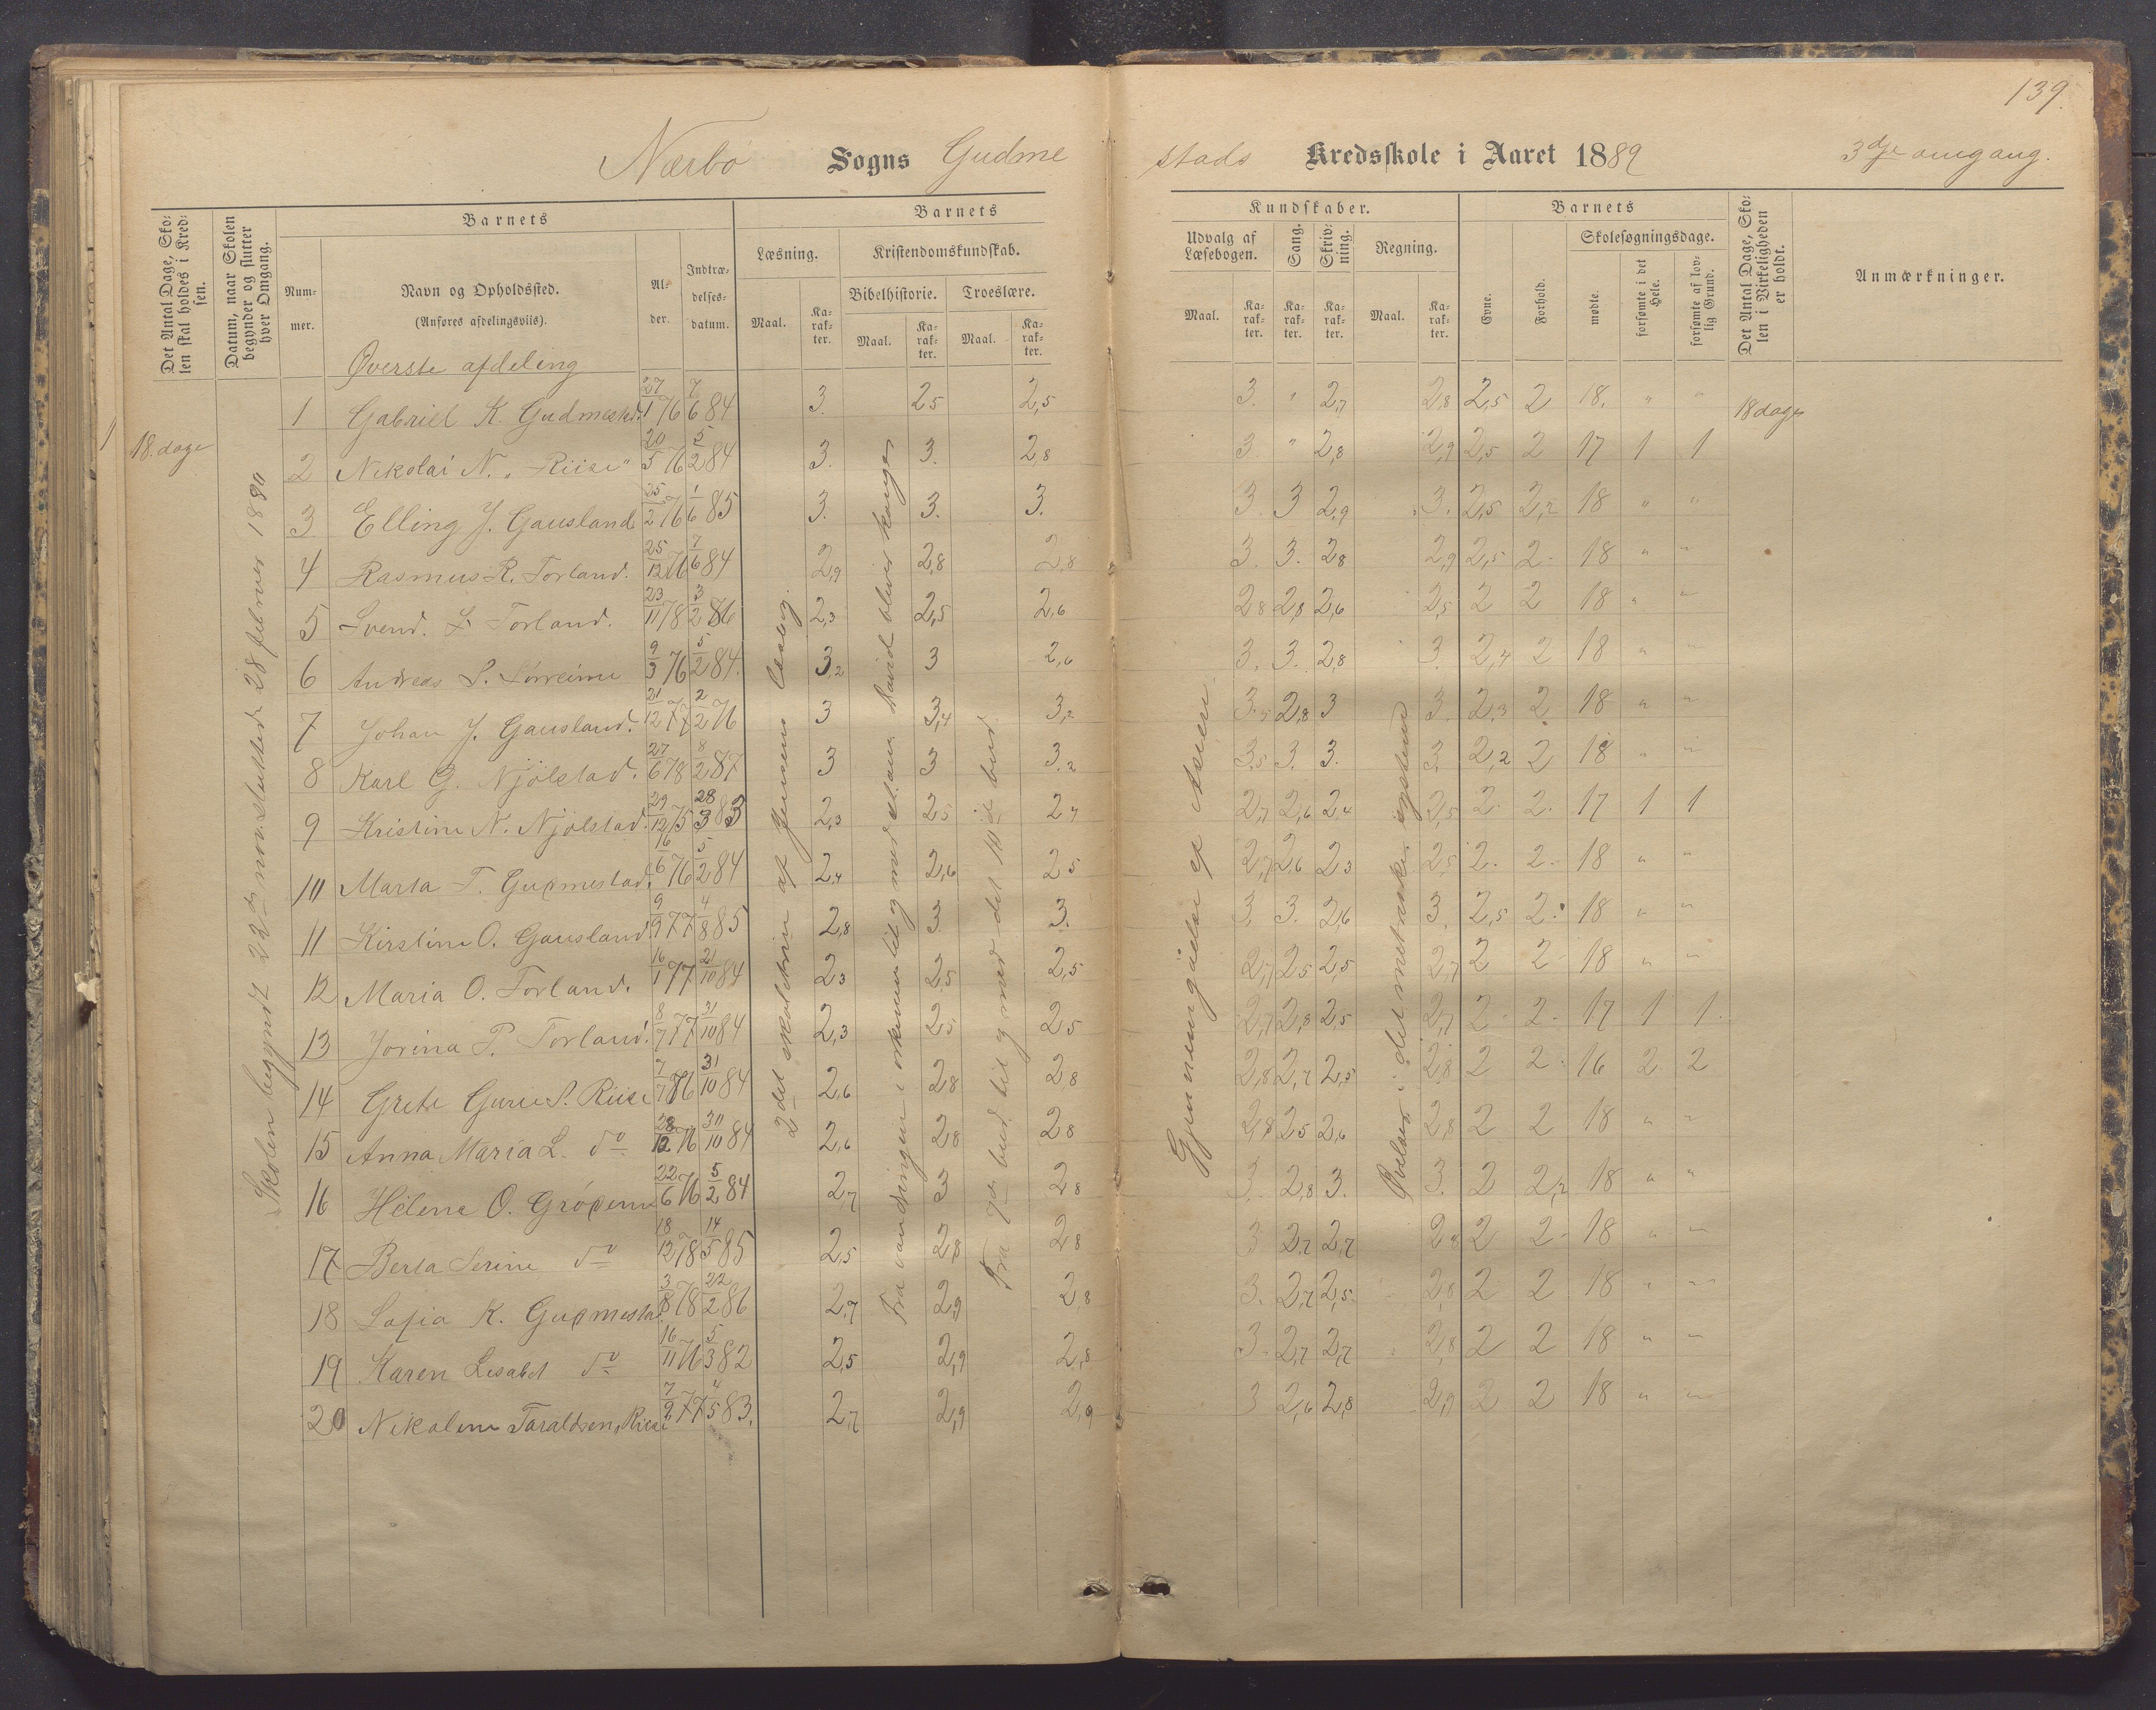 139.
Nærbø Sogns Gudme
stads Kredsskole i Aaret 1889 3dje omgang.
Det Antal Dage, Sko-
len skal holdes i Kred-
sen.
Datum, naar Skolen
begynder og slutter
hver Omgang.
Barnets
Num-
mer.
Navn og Opholdssted.
(Anføres afdelingsviis).
Al-
der.
Indtræ-
delses-
datum.
Barnets
Læsning.
Maal.
Ka-
rak-
ter.
Kristendomskundskab.
Bibelhistorie.
Maal.
Ka-
rak-
ter.
Troeslære.
Maal.
Ka-
rak-
ter.
Kundskaber.
Udvalg af
Læsebogen.
Maal.
Ka-
rak-
ter.
Sang.
Ka-
rak-
ter.
Skriv-
ning.
Ka-
rak-
ter.
Regning.
Maal.
Ka-
rak-
ter.
Barnets
Evne.
Forhold.
Skolesøgningsdage.
mødte.
forsømte i det
Hele.
forsømte af lov-
lig Grund.
Det Antal Dage, Sko-
len i Virkeligheden
er holdt.
Anmærkninger.
Øverste afdeling
1 18. dage
18 dage
Skolen begyndt 22de nov. sluttede 28 februer 1890
2det skoletrin af Jensens Læsebog.
Fra vandringen i ørkenen til og med at David bliver konge
Fra 7de bud til og med det 10de bud
Gjennemgåelse af Asien.
Øvelser i det metriske system
1 Gabriel K. Gudmestad. 27/1 76 7/6 84 3. 2,5 2,5 3. " 2,7 2,8 2,5 2 18. " "
2 Nikolai N. "Riise" 20/5 76 5/2 84 3. 3. 2,8 3. " 2,8 2,9 2,5 2 17 1 1
3 Elling J. Gausland 25/2 76 1/6 85 3. 3. 3. 3. 3 2,9 3. 2,5 2,2 18 " "
4 Rasmus R. Torland. 25/12 76 7/6 84 2,9 2,8 2,8 3. 3. 2,8 2,9 2,5 2 18 " "
5 Svend. L. Torland. 23/11 78 3/2 86 2,3 2,5 2,6 2,8 2,8 2,6 2,5 2 2 18 " "
6 Andreas S. Sørreime 9/3 76 5/2 84. 3,2 3 2,6 3. 3. 2,8 3. 2,4 2 18 " "
7 Johan J. Gausland. 21/12 77 2/2 76 3 3,4 3,2 3,5 2,8 3 3. 2,3 2 18 " "
8 Karl G. Njölstad. 27/6 78 8/2 87 3 3 3,2 3,5 3. 3. 3. 2,2 2 18 " "
9 Kristine N. Njölstad. 29/12 75 28/3 83 2,3 2,5 2,7 2,7 2,6 2,4 2,5 2 2 17 1 1
10 Marta T. Gudmestad. 16/6 76 5/2 84 2,4 2,6 2,5 2,7 2,6 2,3 2,5 2 2 18 " "
11 Kirstine O. Gausland. 9/9 77 4/8 85 2,8 3 3. 3. 3. 2,6 3. 2,5 2 18 " "
12 Maria O. Torland. 16/1 77 21/10 84 2,3 2,5 2,5 2,7 2,5 2,5 2,7 2 2 18 " "
13 Jorina P. Torland. 8/7 77 31/10 84 2,3 2,5 2,5 2,7 2,8 2,5 2,7 2 2 17 1 1
14 Grete Gurie S. Riise 7/7 76 31/10 84 2,6 2,8 2,8 2,8 2,7 2,5 2,8 2 2 16 2 2
15 Anna Maria L. do 28/12 76 30/10 84 2,6 2,8 2,8 2,8 2,5 2,6 2,8 2 2 18 " "
16 Helene O. Grödem 22/6 76 5/2 84 2,7 3 2,8 3. 2,8 3. 3. 2 2,2 18 " "
17 Berta Serine do 18/12 78 14/5 85 2,5 2,8 2,8 3 2,7 2,7 2,8 2 2 18 " "
18 Sofia K. Gudmestad 3/8 78 22/2 86 2,7 2,9 2,8 3. 2,7 2,5 2,8 2 2 18 " "
19 Karen Lisabet do 16/11 76 5/3 82 2,5 2,9 2,8 3 2,7 2,7 2,8 2 2 18 " "
20 Nikoline Taraldsen, Riise 7/9 77 4/5 83. 2,7 2,9 2,9 3 2,6 2,8 2,9 2 2 18 " "